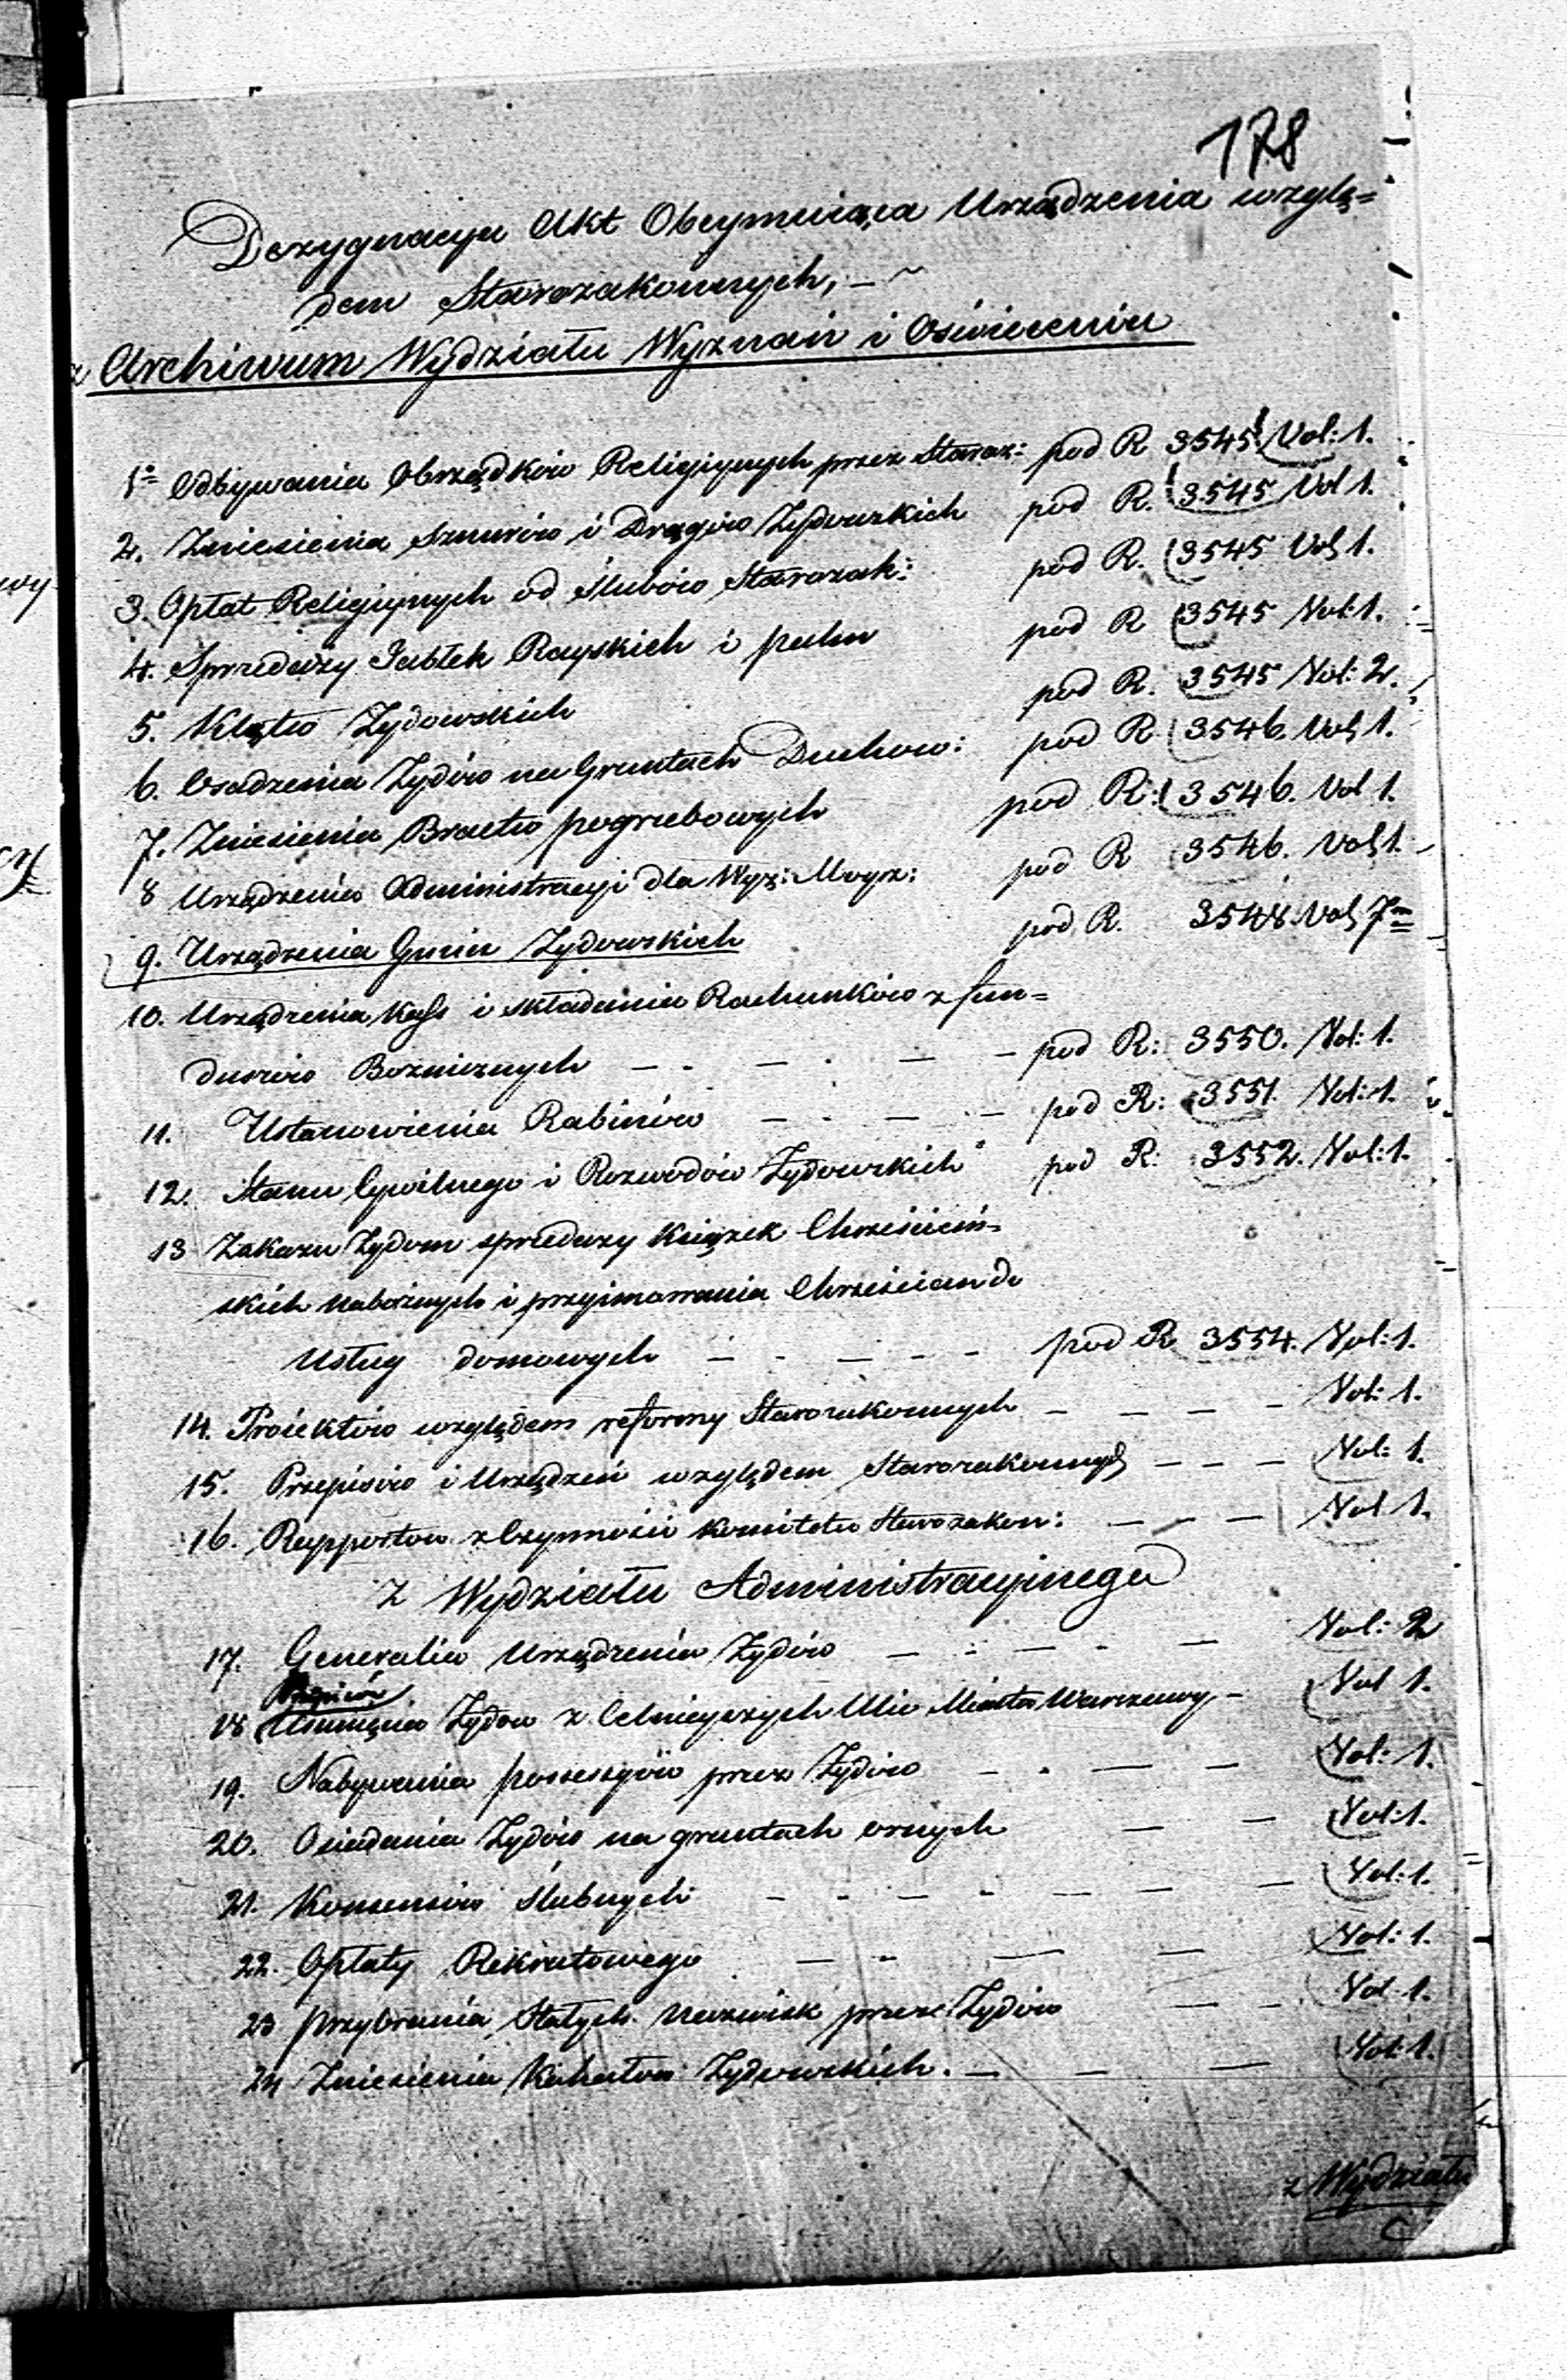 178
Dezygnacya Akt Obeymuiąca Urządzenia wzglę=
dem Starozakonnych, —
z Archiwum Wydziału Wyznań i Oświecenia
1o Odbywania Obrządków Religiynych przez Staroz: pod R 3545 Vol: 1.
2. Zniesienia Sznurów i Drągów Żydowskich pod R. 3545 Vol 1.
3. Opłat Religiynych od Ślubów Starozak: pod R. 3545 Vol 1.
4. Sprzedaży Jabłek Rayskich i palm pod R 3545 Vol: 1.
5. Klątw Żydowskich pod R. 3545 Vol: 2.
6. Osadzenia Żydów na Gruntach Duchow: pod R 3546. Vol 1.
7. Zniesienia Bractw pogrzebowych pod R: 3546. Vol 1.
8 Urządzenia Administracyi dla Wyz: Moyż: pod R 3546. Vol 1.
9. Urządzenia Gmin Żydowskich pod R. 3548. Vol 7m
10. Urządzenia Kass i składania Rachunków z fun=
duszów Bożniczych — - — . — — pod R: 3550. Vol: 1.
11. Ustanowienia Rabinów — - — - — pod R: 3551. Vol: 1.
12. Stanu Cywilnego i Rozwodów Żydowskich pod R: 3552. Vol: 1.
13 Zakazu Żydom sprzedaży Książek Chrześciań=
skich nabożnych i przyimowania Chrześcian do
Usług domowych — - — - - pod R 3554. Vol: 1.
14. Proiektów względem reformy Starozakonnych — — — — Vol: 1.
15. Przepisów i Urządzeń względem Starozakonnych — — — Vol: 1.
16. Rapportow z Czynności Komitetu Starozakon: — — — Vol 1.
z Wydziału Administracyinego
17. Generalia Urządzenia Żydów — - — - — Vol: 2
18 Usunięcia Żydow z Celnieyszych Ulic Miasta Warszawy — Vol 1.
19. Nabywania possessyów przez Żydów — - — — Vol: 1.
20. Osiadania Żydów na gruntach ornych — — Vol: 1.
21. Konsensów Ślubnych — - — - — — — Vol: 1.
22. Opłaty Rekrutowego — - — — Vol: 1.
23 przybrania Stałych Nazwisk przez Żydów — - Vol. 1.
24 Zniesienia Kahałow Żydowskich. — — — Vol: 1.
z Wydziału